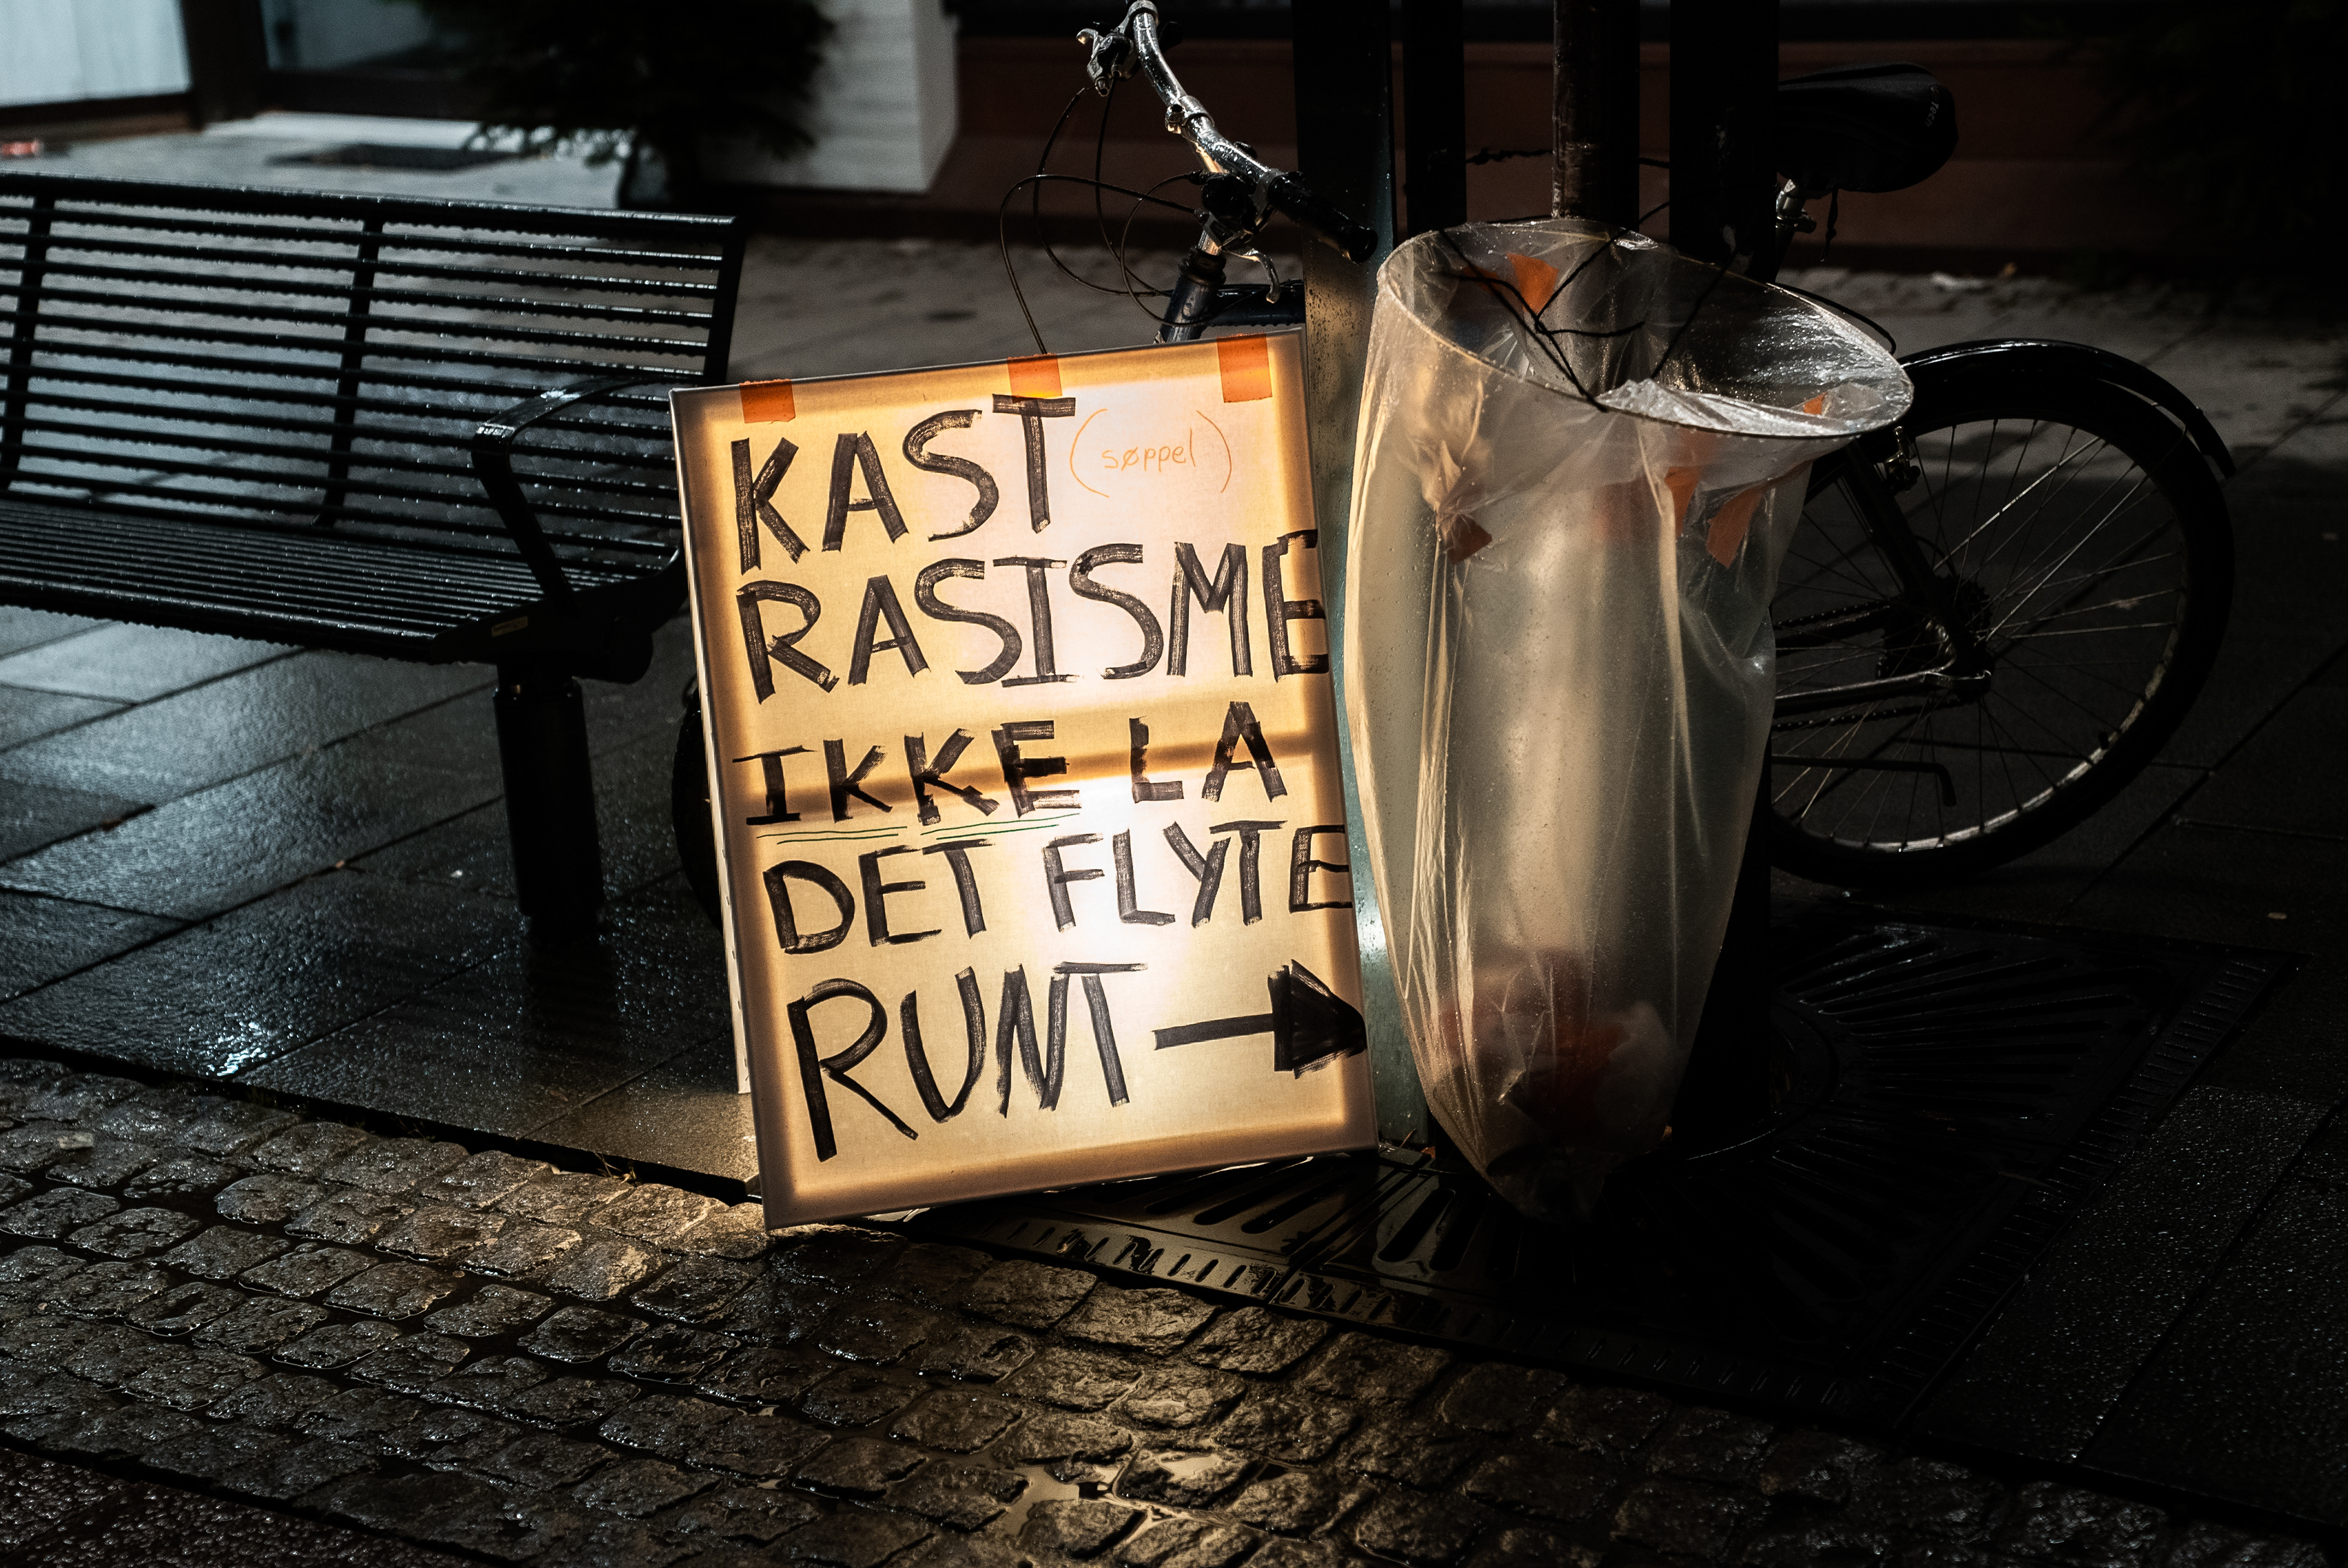 KAST (søppel)
RASISME
IKKE LA
DET FLYTE
RUNT →